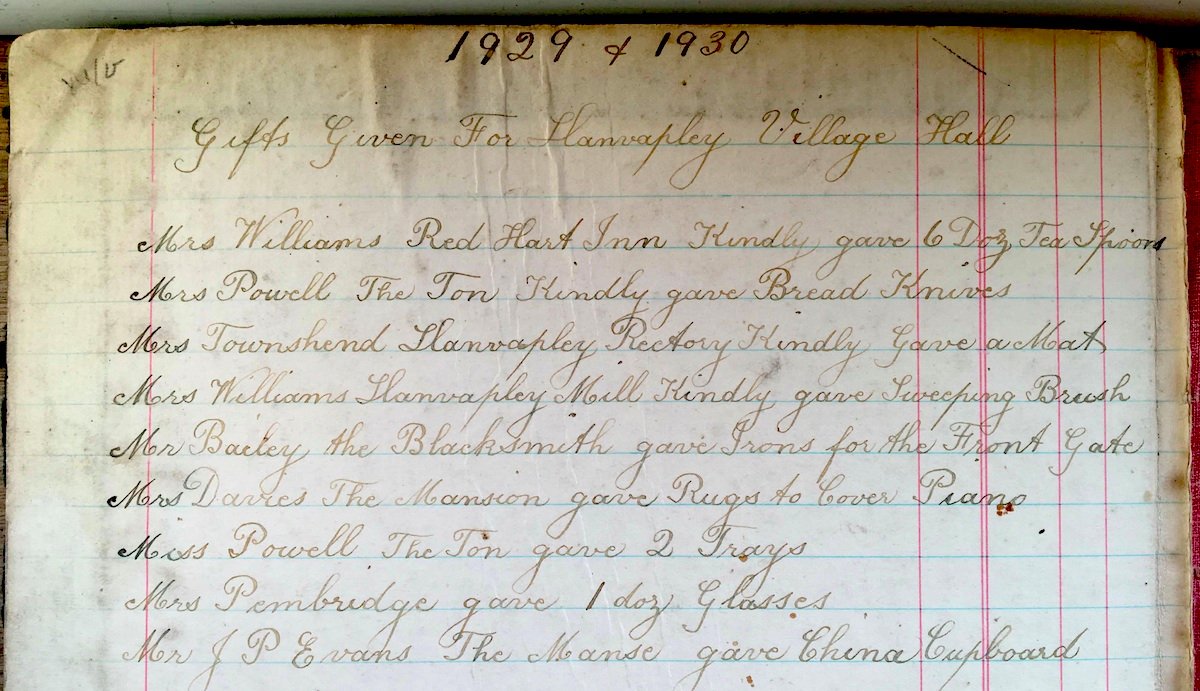 1929 & 1930
Gifts Given For Llanvapley Village Hall
Mrs Williams Red Hart Inn Kindly gave 6 Doz Tea Spoons
Mrs Powell The Ton Kindly gave Bread Knives
Mrs Townshend Llanvapley Rectory Kindly Gave a Mat
Mrs Williams Llanvapley Mill Kindly gave Sweeping Brush
Mr Bailey the Blacksmith gave Irons for the Front Gate
Mrs Davies The Mansion gave Rugs to Cover Piano
Miss Powell The Ton gave 2 Trays
Mrs Pembridge gave 1 doz Glasses
Mr J P Evans The Manse gave China Cupboard